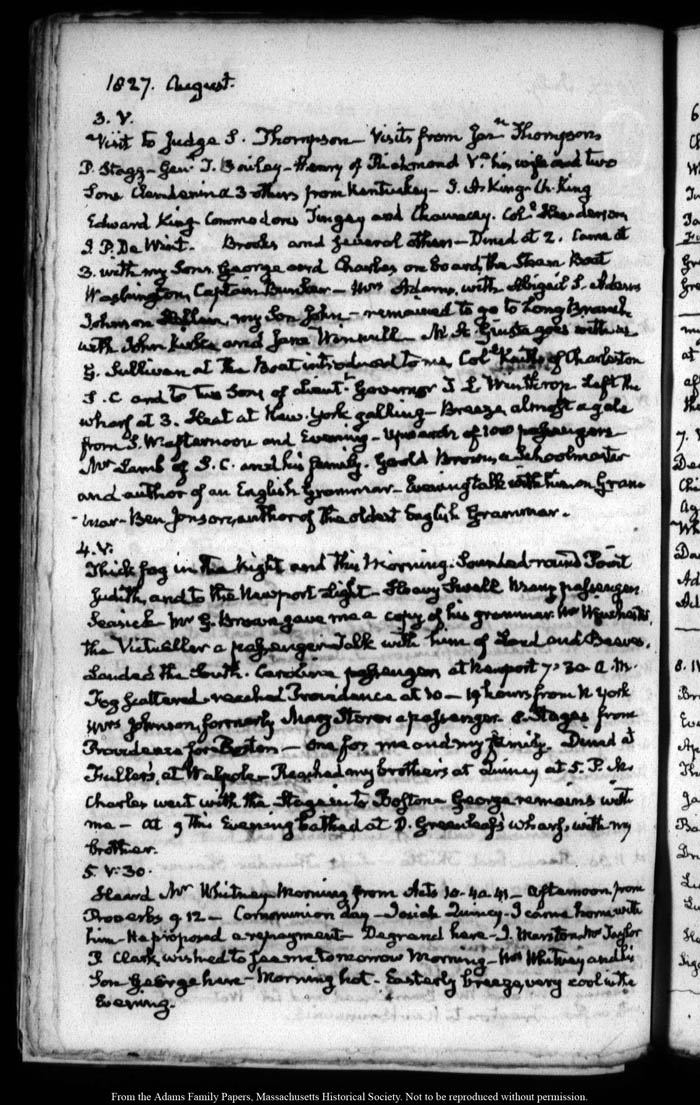 1827. August.
3. V.
Visit to Judge S. Thompson — Visits from Jona.n Thompson
P. Stagg — Gen.l T. Bailey — Henry of Richmond V.a his wife and two
Sons 3 others from Kentuckey — J. A. King. Ch. King
Edward King. Commodores Tingey and Chauncey. Col.l Henderson
J. P. De Wint. Brooks and several others — Dined at 2. Came at
3. with my Sons George and Charles on board, the Steam Boat
Washington, Captain Bunker — Mrs Adams, with Abigail S. Adams
Johnson Hellen, my Son John — remained to go to Long Branch
with John Kirke and Jane Winnull — M. A. Giusta goes with us
G. Sullivan at the Boat introduced to me Col.l Keith of Charleston
S. C. and to two Sons of Lieut.t Governor T L. Winthrop. Left the
wharf at 3. Heat at New-York galling — Breeze, almost a gale
from S. W afternoon and Evening — Upwards of 100 passengers
Mr Lamb of S. C. and his family. Goold Brown, a Schoolmaster
and author of an English Grammar — Evening talk with him on Gram
-mar — Ben Jonson, author of the oldest English Grammar.
4. V.
Thick fog in the Night and this Morning. Sounded round Point
Judith, and to the Newport Light — Heavy Swell Many passengers
Seasick — Mr G. Brown gave me a copy of his grammar. Mr Winchester
the Victualler a passenger Talk with him of Lard and Beeves.
Landed the South. Carolina passengers at Newport 7.30 A.M.
Fog scattered — reached Providence at 10 — 19 hours from N York
Mrs Johnson, formerly Mary Storer a passenger. 8. Stages from
Providence for Boston — one for me and my family. Dined at
Fuller's, at Walpole — Reached my brother's at Quincy at 5. P.M.
Charles went with the Stage into Boston. George remains with
me — At 9 this Evening bathed at D. Greenleaf's wharf, with my
brother.
5. V. 30.
Heard Mr Whitney Morning from Acts 10. 40 41 — Afternoon from
Proverbs 9 12 — Communion day — Josiah Quincy — I came home with
him — He proposed a repayment — Degrand here — J. Marston, Mr Taylor
P. Clark, wished to see me tomorrow Morning — Mr Whitney and his
Son George here — Morning hot — Easterly breeze, very cool in the
Evening.
From the Adams Family Papers, Massachusetts Historical Society. Not to be reproduced without permission.